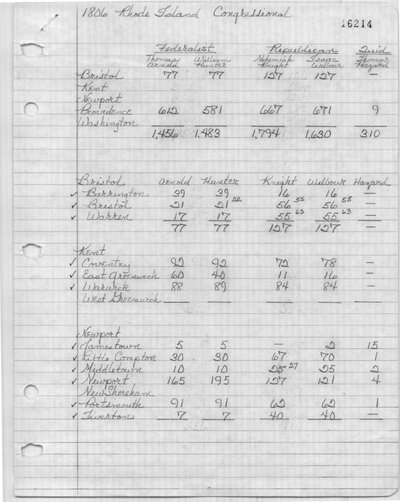 1806 Rhode Island Congressional
16214
Federalist Republican Quid
Thomas Arnold William Hunter Nehemiah Knight Isaac Wilbour Thomas Hazard
Bristol 77 77 127 127 —
Kent
Newport
Providence 612 581 667 671 9
Washington
1,456 1,483 1,794 1,630 310
Bristol Arnold Hunter Knight Wilbour Hazard
✓ Barrington 39 39 16 16 —
✓ Bristol 21 21 22 56 55 56 55 —
✓ Warren 17 17 55 63 55 63 —
77 77 127 127 —
Kent
✓ Coventry 92 92 72 78 —
✓ East Greenwich 60 40 11 16 —
✓ Warwick 88 89 84 84 —
West Greenwich
Newport
✓ Jamestown 5 5 — 2 15
✓ Little Compton 30 30 67 70 1
✓ Middletown 10 10 25 27 25 2
✓ Newport 165 195 127 121 4
New Shoreham
✓ Portsmouth 91 91 62 62 1
✓ Tiverton 7 7 40 40 —